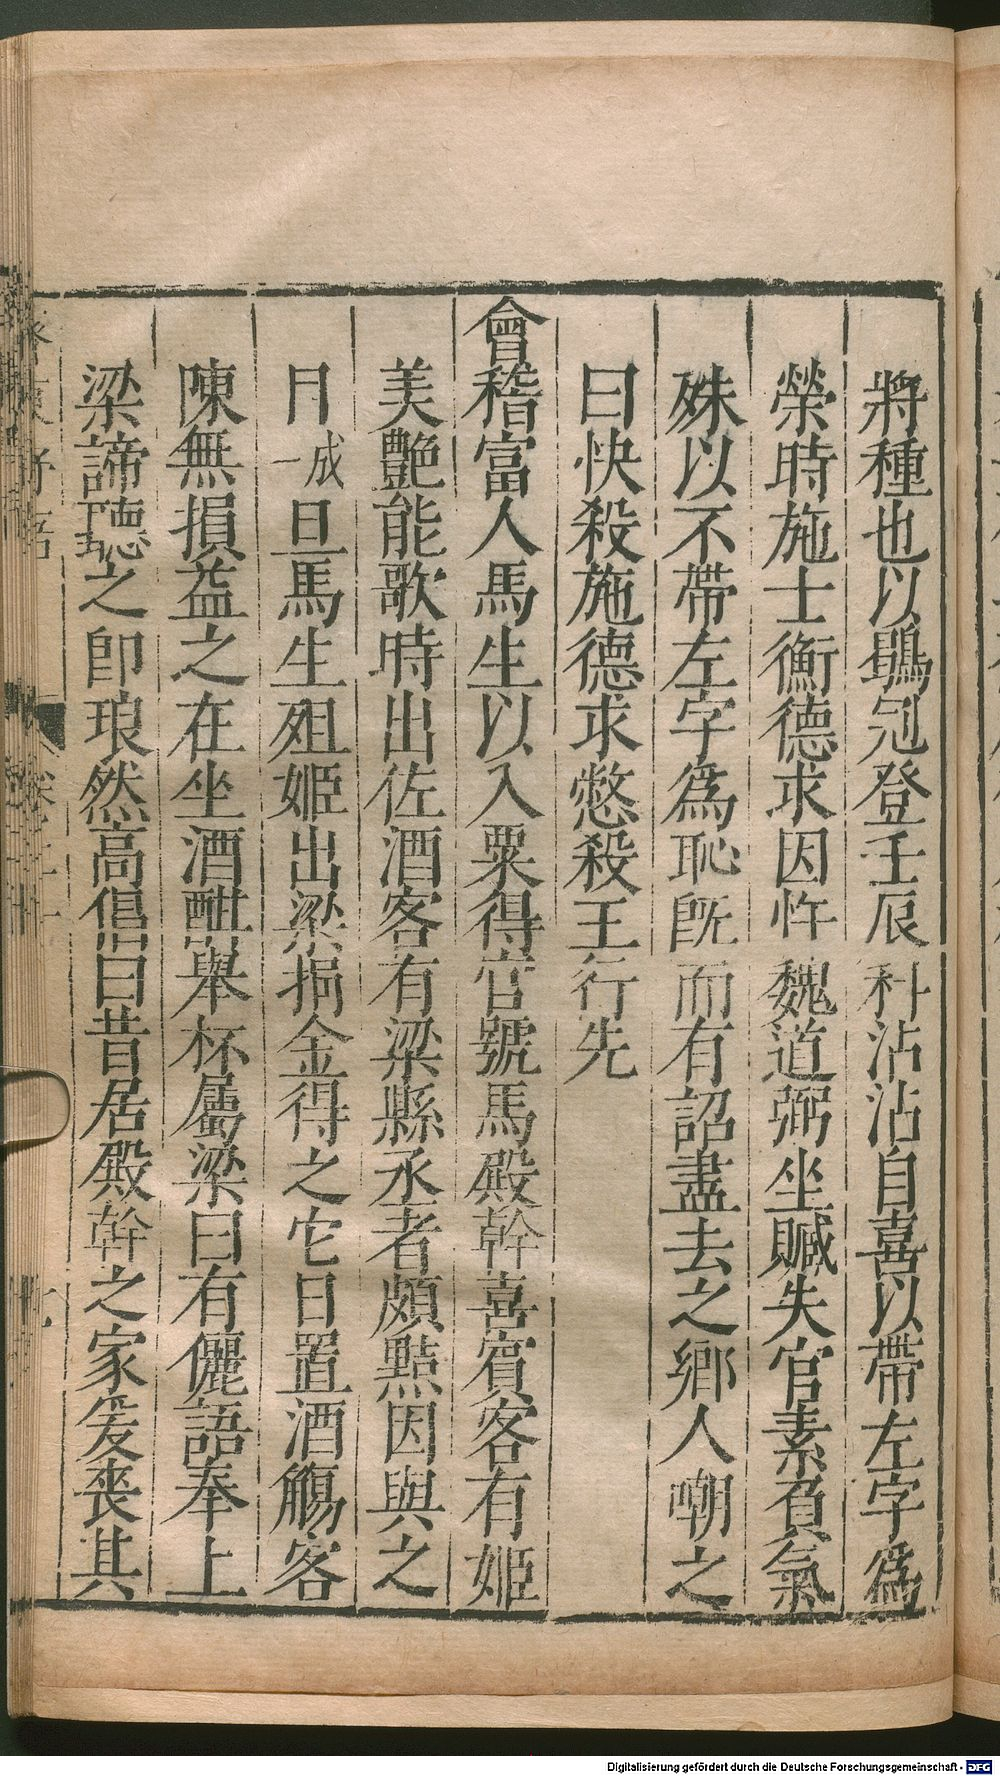 將種也以鶡冠登壬辰科沾沾自喜以帶左字爲
榮時施士衡德求因忤魏道弼坐贓失官素負氣
殊以不帶左字爲恥旣而有詔盡去之鄉人嘲之
曰快殺施德求憋殺王行先
會稽富人馬生以入粟得官號馬殿幹喜賓客有姬
美艷能歌時出佐酒客有梁縣丞者頗黠因與之
月成一旦馬生殂姬出梁捐金得之它日置酒觴客
陳無損益之在坐酒酣舉杯屬梁曰有儷語奉上
梁諦聽之卽琅然高倡曰昔居殿幹之家爰喪其
齊東野語
Digitalisierung gefördert durch die Deutsche Forschungsgemeinschaft - DFG